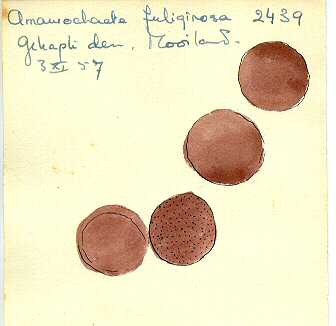 Amaurochaete fuliginosa 2439
Gekapte den, Mooiland.
3 XI 57